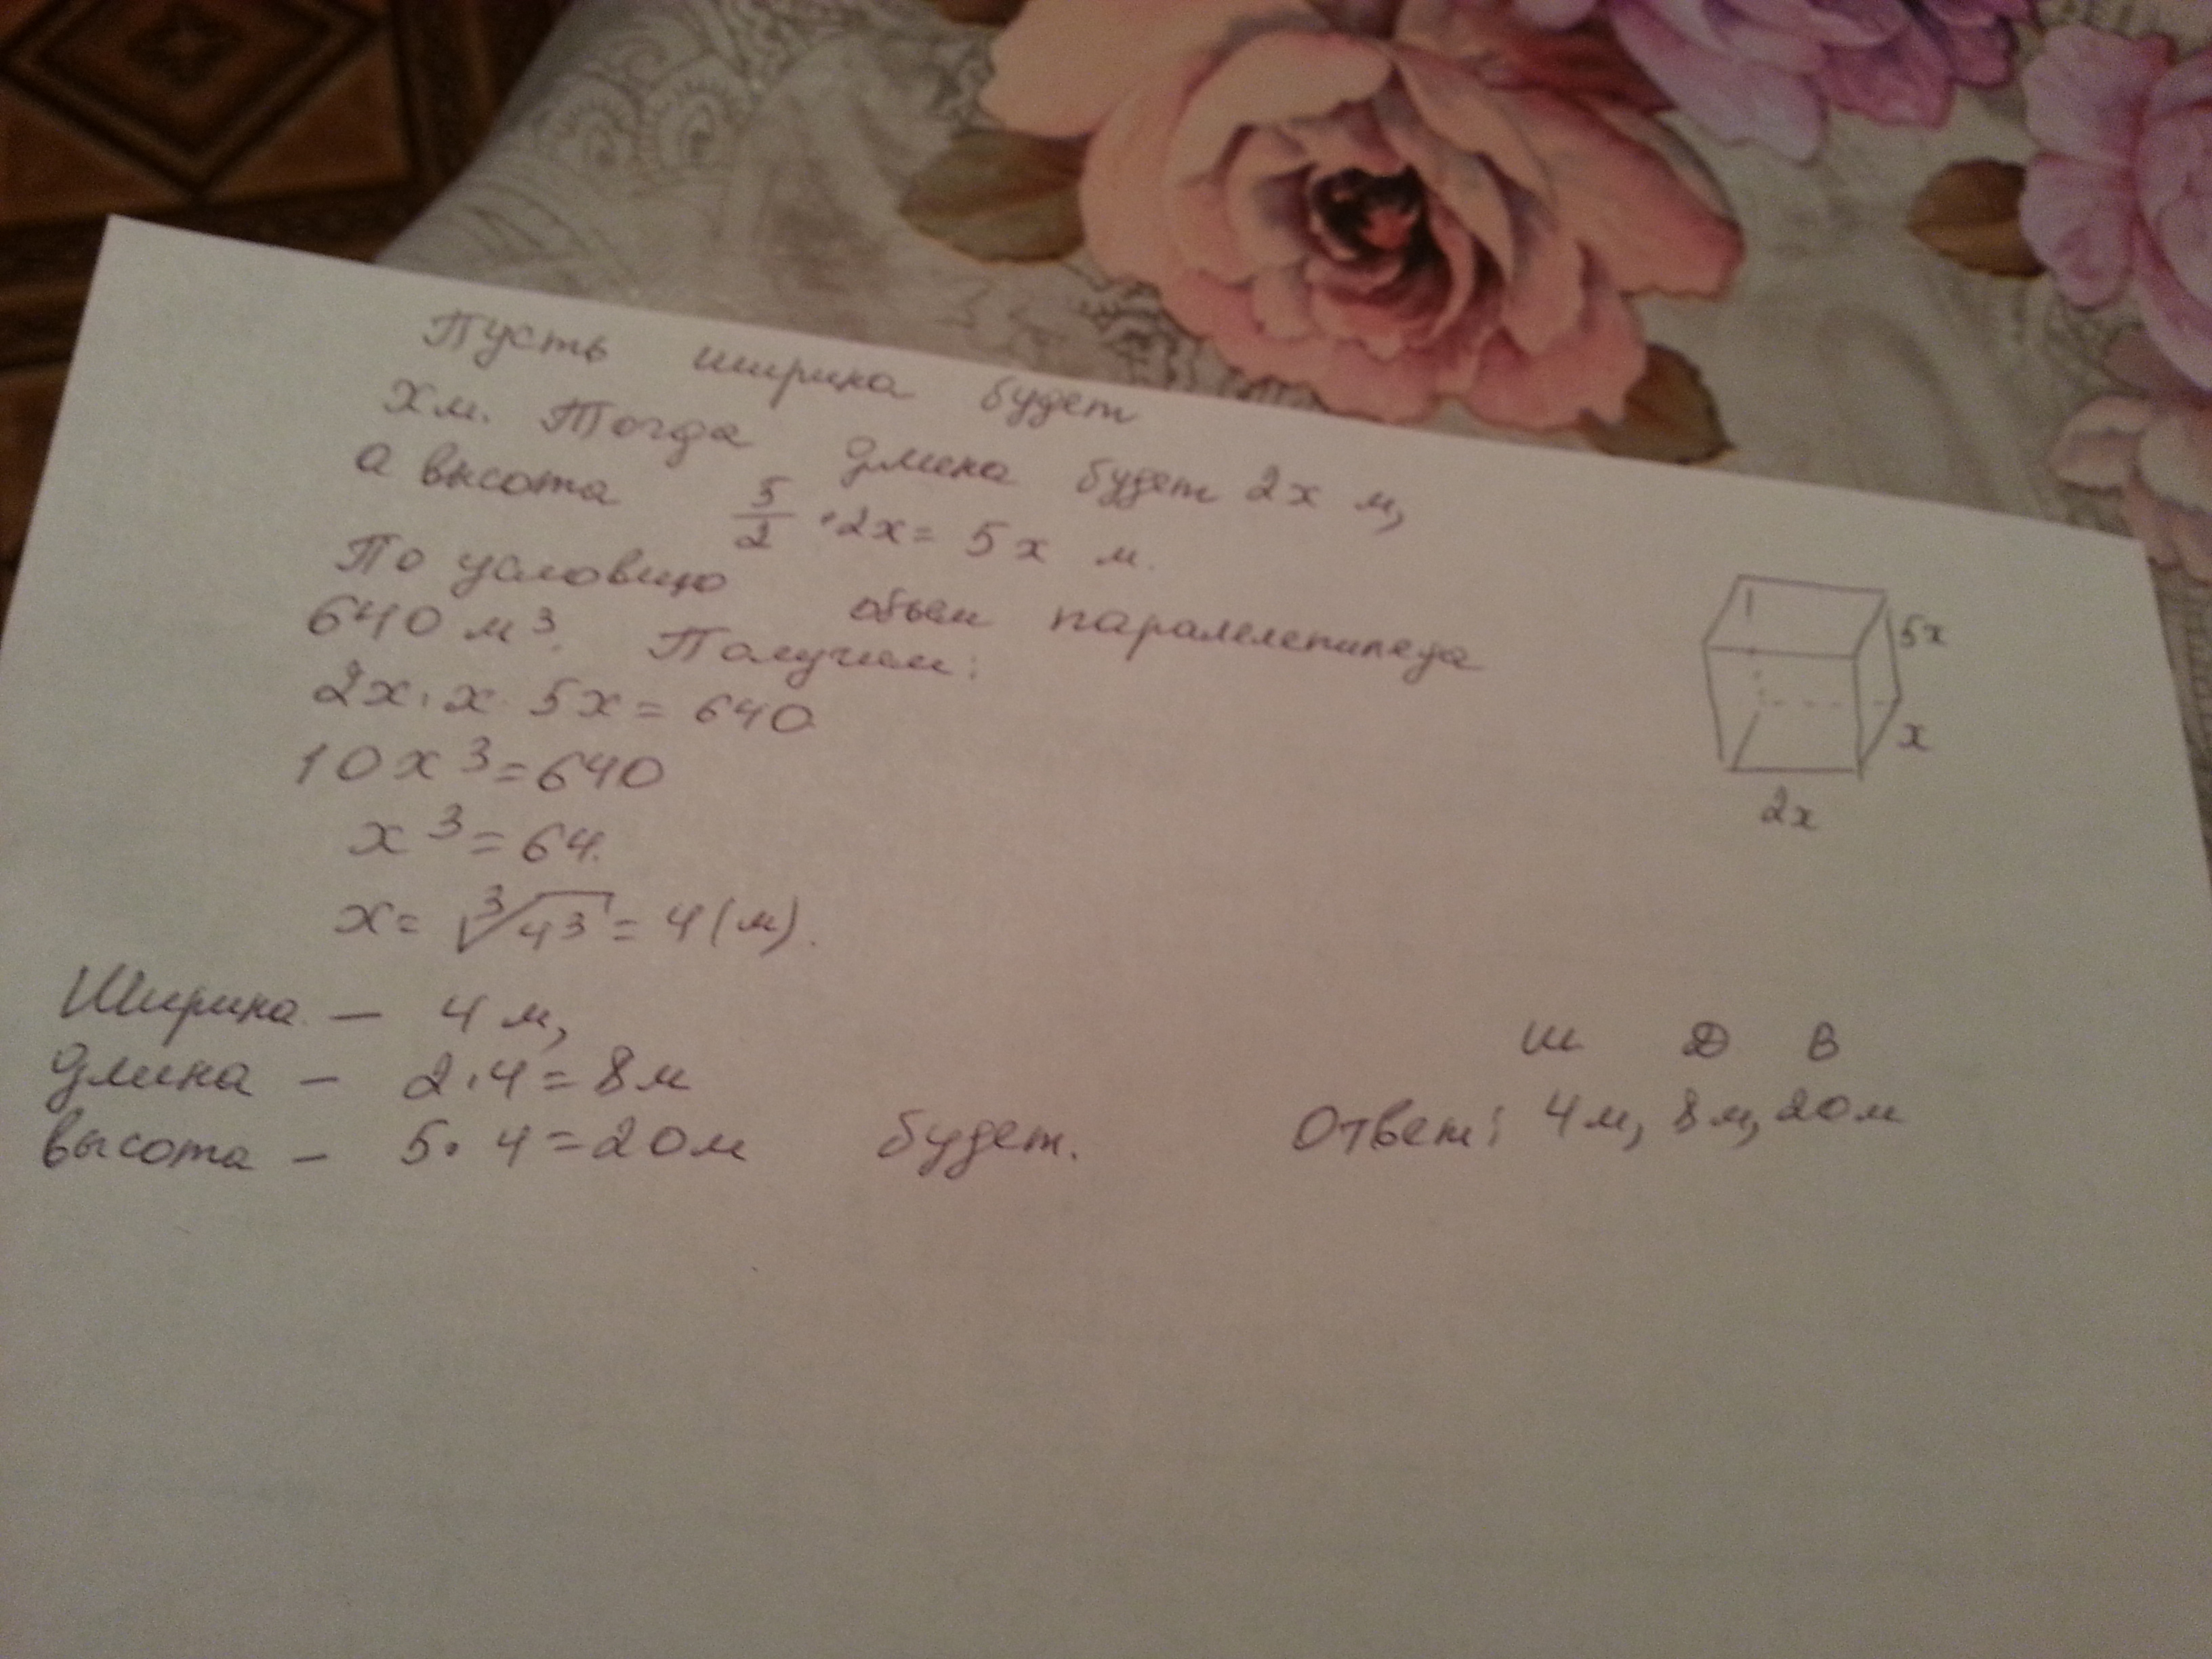 Пусть ширина будет
х м. Тогда длина будет 2х м,
а высота 5/2 · 2х = 5х м.
По условию объем паралелепипеда
640 м³. Получим:
2х · х · 5х = 640
10х³ = 640
х³ = 64.
х = ∛4³ = 4 (м).
Ширина – 4 м,
длина – 2 · 4 = 8 м
высота – 5 · 4 = 20 м будет.
5х
х
2х
Ш Д В
Ответ: 4 м, 8 м, 20 м